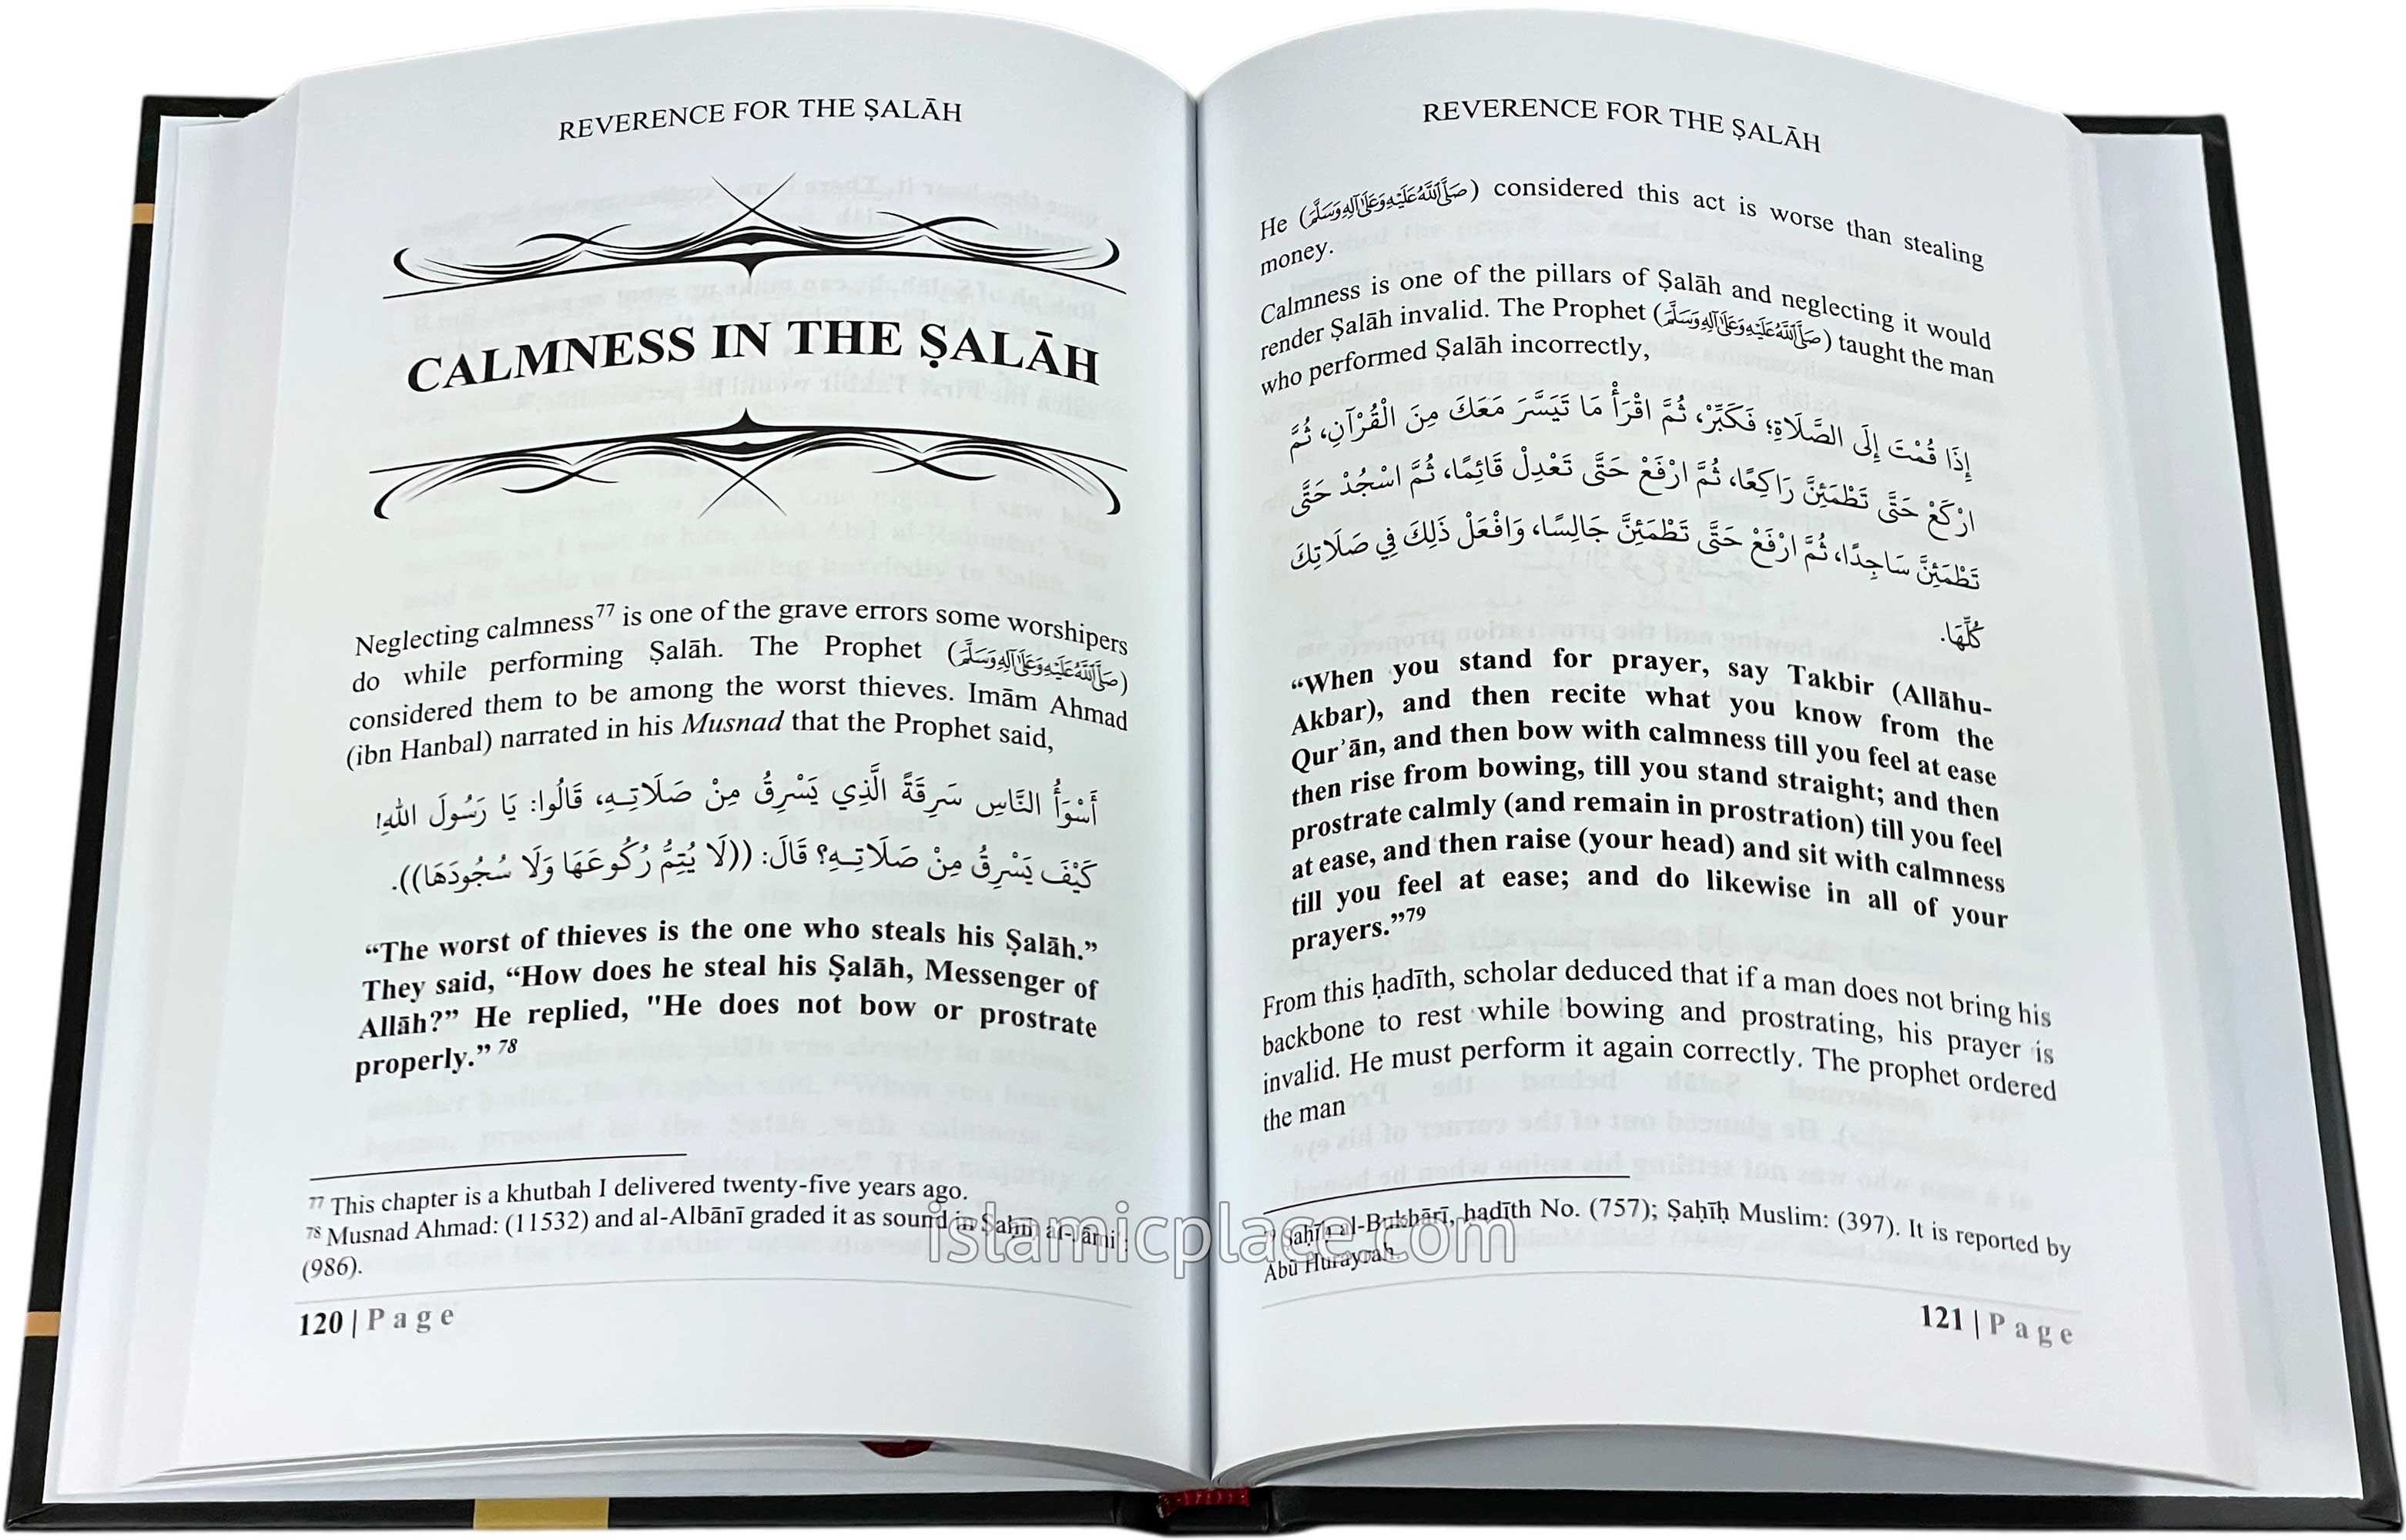 REVERENCE FOR THE ṢALĀH
CALMNESS IN THE ṢALĀH
Neglecting calmness⁷⁷ is one of the grave errors some worshipers
do while performing Ṣalāh. The Prophet (صَلَّى اللَّهُ عَلَيْهِ وَعَلَى آلِهِ وَسَلَّمَ)
considered them to be among the worst thieves. Imām Ahmad
(ibn Hanbal) narrated in his Musnad that the Prophet said,
أَسْوَأُ النَّاسِ سَرِقَةً الَّذِي يَسْرِقُ مِنْ صَلَاتِهِ، قَالُوا: يَا رَسُولَ اللهِ!
كَيْفَ يَسْرِقُ مِنْ صَلَاتِهِ؟ قَالَ: ((لَا يُتِمُّ رُكُوعَهَا وَلَا سُجُودَهَا)).
“The worst of thieves is the one who steals his Ṣalāh.”
They said, “How does he steal his Ṣalāh, Messenger of
Allāh?” He replied, "He does not bow or prostrate
properly.” ⁷⁸
⁷⁷ This chapter is a khutbah I delivered twenty-five years ago.
⁷⁸ Musnad Ahmad: (11532) and al-Albānī graded it as sound in Ṣaḥīḥ al-Jāmi :
(986).
120 | Page
REVERENCE FOR THE ṢALĀH
He (صَلَّى اللَّهُ عَلَيْهِ وَعَلَى آلِهِ وَسَلَّمَ) considered this act is worse than stealing
money.
Calmness is one of the pillars of Ṣalāh and neglecting it would
render Ṣalāh invalid. The Prophet (صَلَّى اللَّهُ عَلَيْهِ وَعَلَى آلِهِ وَسَلَّمَ) taught the man
who performed Ṣalāh incorrectly,
إِذَا قُمْتَ إِلَى الصَّلَاةِ؛ فَكَبِّرْ، ثُمَّ اقْرَأْ مَا تَيَسَّرَ مَعَكَ مِنَ الْقُرْآنِ، ثُمَّ
ارْكَعْ حَتَّى تَطْمَئِنَّ رَاكِعًا، ثُمَّ ارْفَعْ حَتَّى تَعْدِلْ قَائِمًا، ثُمَّ اسْجُدْ حَتَّى
تَطْمَئِنَّ سَاجِدًا، ثُمَّ ارْفَعْ حَتَّى تَطْمَئِنَّ جَالِسًا، وَافْعَلْ ذَلِكَ فِي صَلَاتِكَ
كُلَّهَا.
“When you stand for prayer, say Takbir (Allāhu-
Akbar), and then recite what you know from the
Qur’ān, and then bow with calmness till you feel at ease
then rise from bowing, till you stand straight; and then
prostrate calmly (and remain in prostration) till you feel
at ease, and then raise (your head) and sit with calmness
till you feel at ease; and do likewise in all of your
prayers.”⁷⁹
From this ḥadīth, scholar deduced that if a man does not bring his
backbone to rest while bowing and prostrating, his prayer is
invalid. He must perform it again correctly. The prophet ordered
the man
⁷⁹ Ṣaḥīḥ al-Bukhārī, ḥadīth No. (757); Ṣaḥīḥ Muslim: (397). It is reported by
Abū Hurayrah.
121 | Page
islamicplace.com